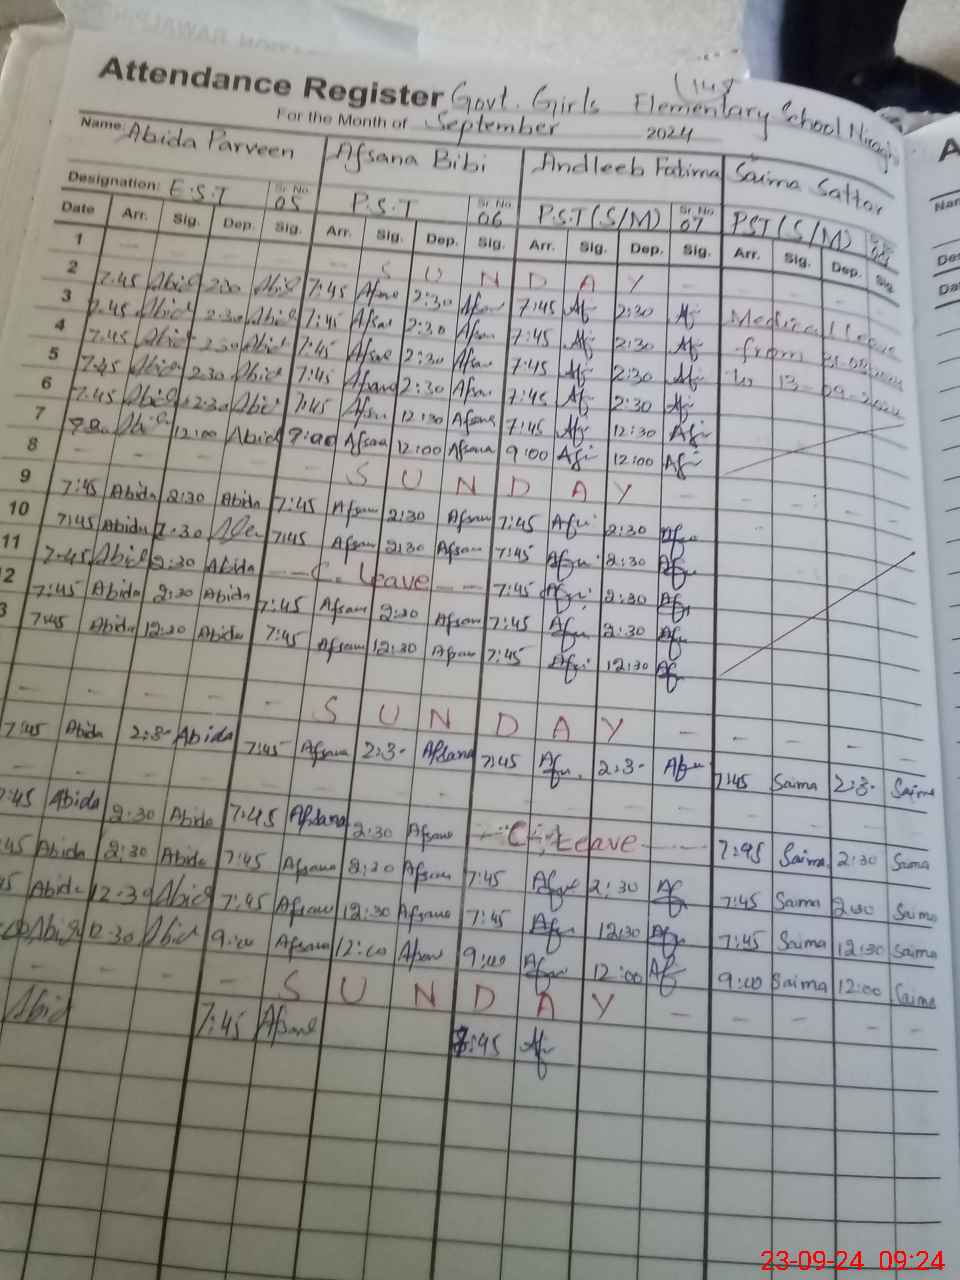 Attendance Register Govt. Girls Elementary School
For the Month of September 2024
Name: Abida Parveen Afsana Bibi Andleeb Fatima Saima Sattar
Designation: E.S.T Sr. No. 05 P.S.T Sr. No. 06 P.S.T (S/M) Sr. No. 07 PST (S/M)
Date Arr. Sig. Dep. Sig. Arr. Sig. Dep. Sig. Arr. Sig. Dep. Sig. Arr. Sig. Dep. Sig.
1 S U N D A Y
2 7:45 Abid 2:30 Abid 7:45 Afsan 2:30 Afsan 7:45 Af 2:30 Af Medical leave
3 7:45 Abid 2:30 Abid 7:45 Afsan 2:30 Afsan 7:45 Af 2:30 Af from
4 7:45 Abid 2:30 Abid 7:45 Afsan 2:30 Afsan 7:45 Af 2:30 Af to 13-09-2024
5 7:45 Abid 2:30 Abid 7:45 Afsana 2:30 Afsan 7:45 Af 2:30 Af
6 7:45 Abid 12:30 Abid 7:45 Afsan 12:30 Afsana 7:45 Af 12:30 Af
7 Abid 12:00 Abid 9:00 Afsana 12:00 Afsana 9:00 Af 12:00 Af
8 S U N D A Y
9 7:45 Abida 2:30 Abida 7:45 Afsan 2:30 Afsan 7:45 Af 2:30 Af
10 7:45 Abida 2:30 7:45 Afsan 2:30 Afsan 7:45 Af 2:30 Af
11 7:45 Abid 2:30 Abida C. Leave 7:45 Af 2:30 Af
2 7:45 Abida 2:30 Abida 7:45 Afsan 2:30 Afsan 7:45 Af 2:30 Af
3 7:45 Abida 12:30 Abida 7:45 Afsan 12:30 Afsan 7:45 Af 12:30 Af
S U N D A Y
7:45 Abida 2:3- Abida 7:45 Afsana 2:3- Afsana 7:45 Af 2:3- Af 7:45 Saima 2:3- Saima
7:45 Abida 2:30 Abida 7:45 Afsana 2:30 Afsana C. Leave 7:45 Saima 2:30 Saima
45 Abida 2:30 Abida 7:45 Afsana 2:30 Afsan 7:45 Af 2:30 Af 7:45 Saima 2:30 Saima
5 Abida 12:30 Abid 7:45 Afsana 12:30 Afsana 7:45 Af 12:30 Af 7:45 Saima 12:30 Saima
Abid 12:30 Abid 9:00 Afsana 12:00 Afsan 9:00 Af 12:00 Af 9:00 Saima 12:00 Saima
S U N D A Y
Abid 7:45 Afsane :45 Af
23-09-24 09:24